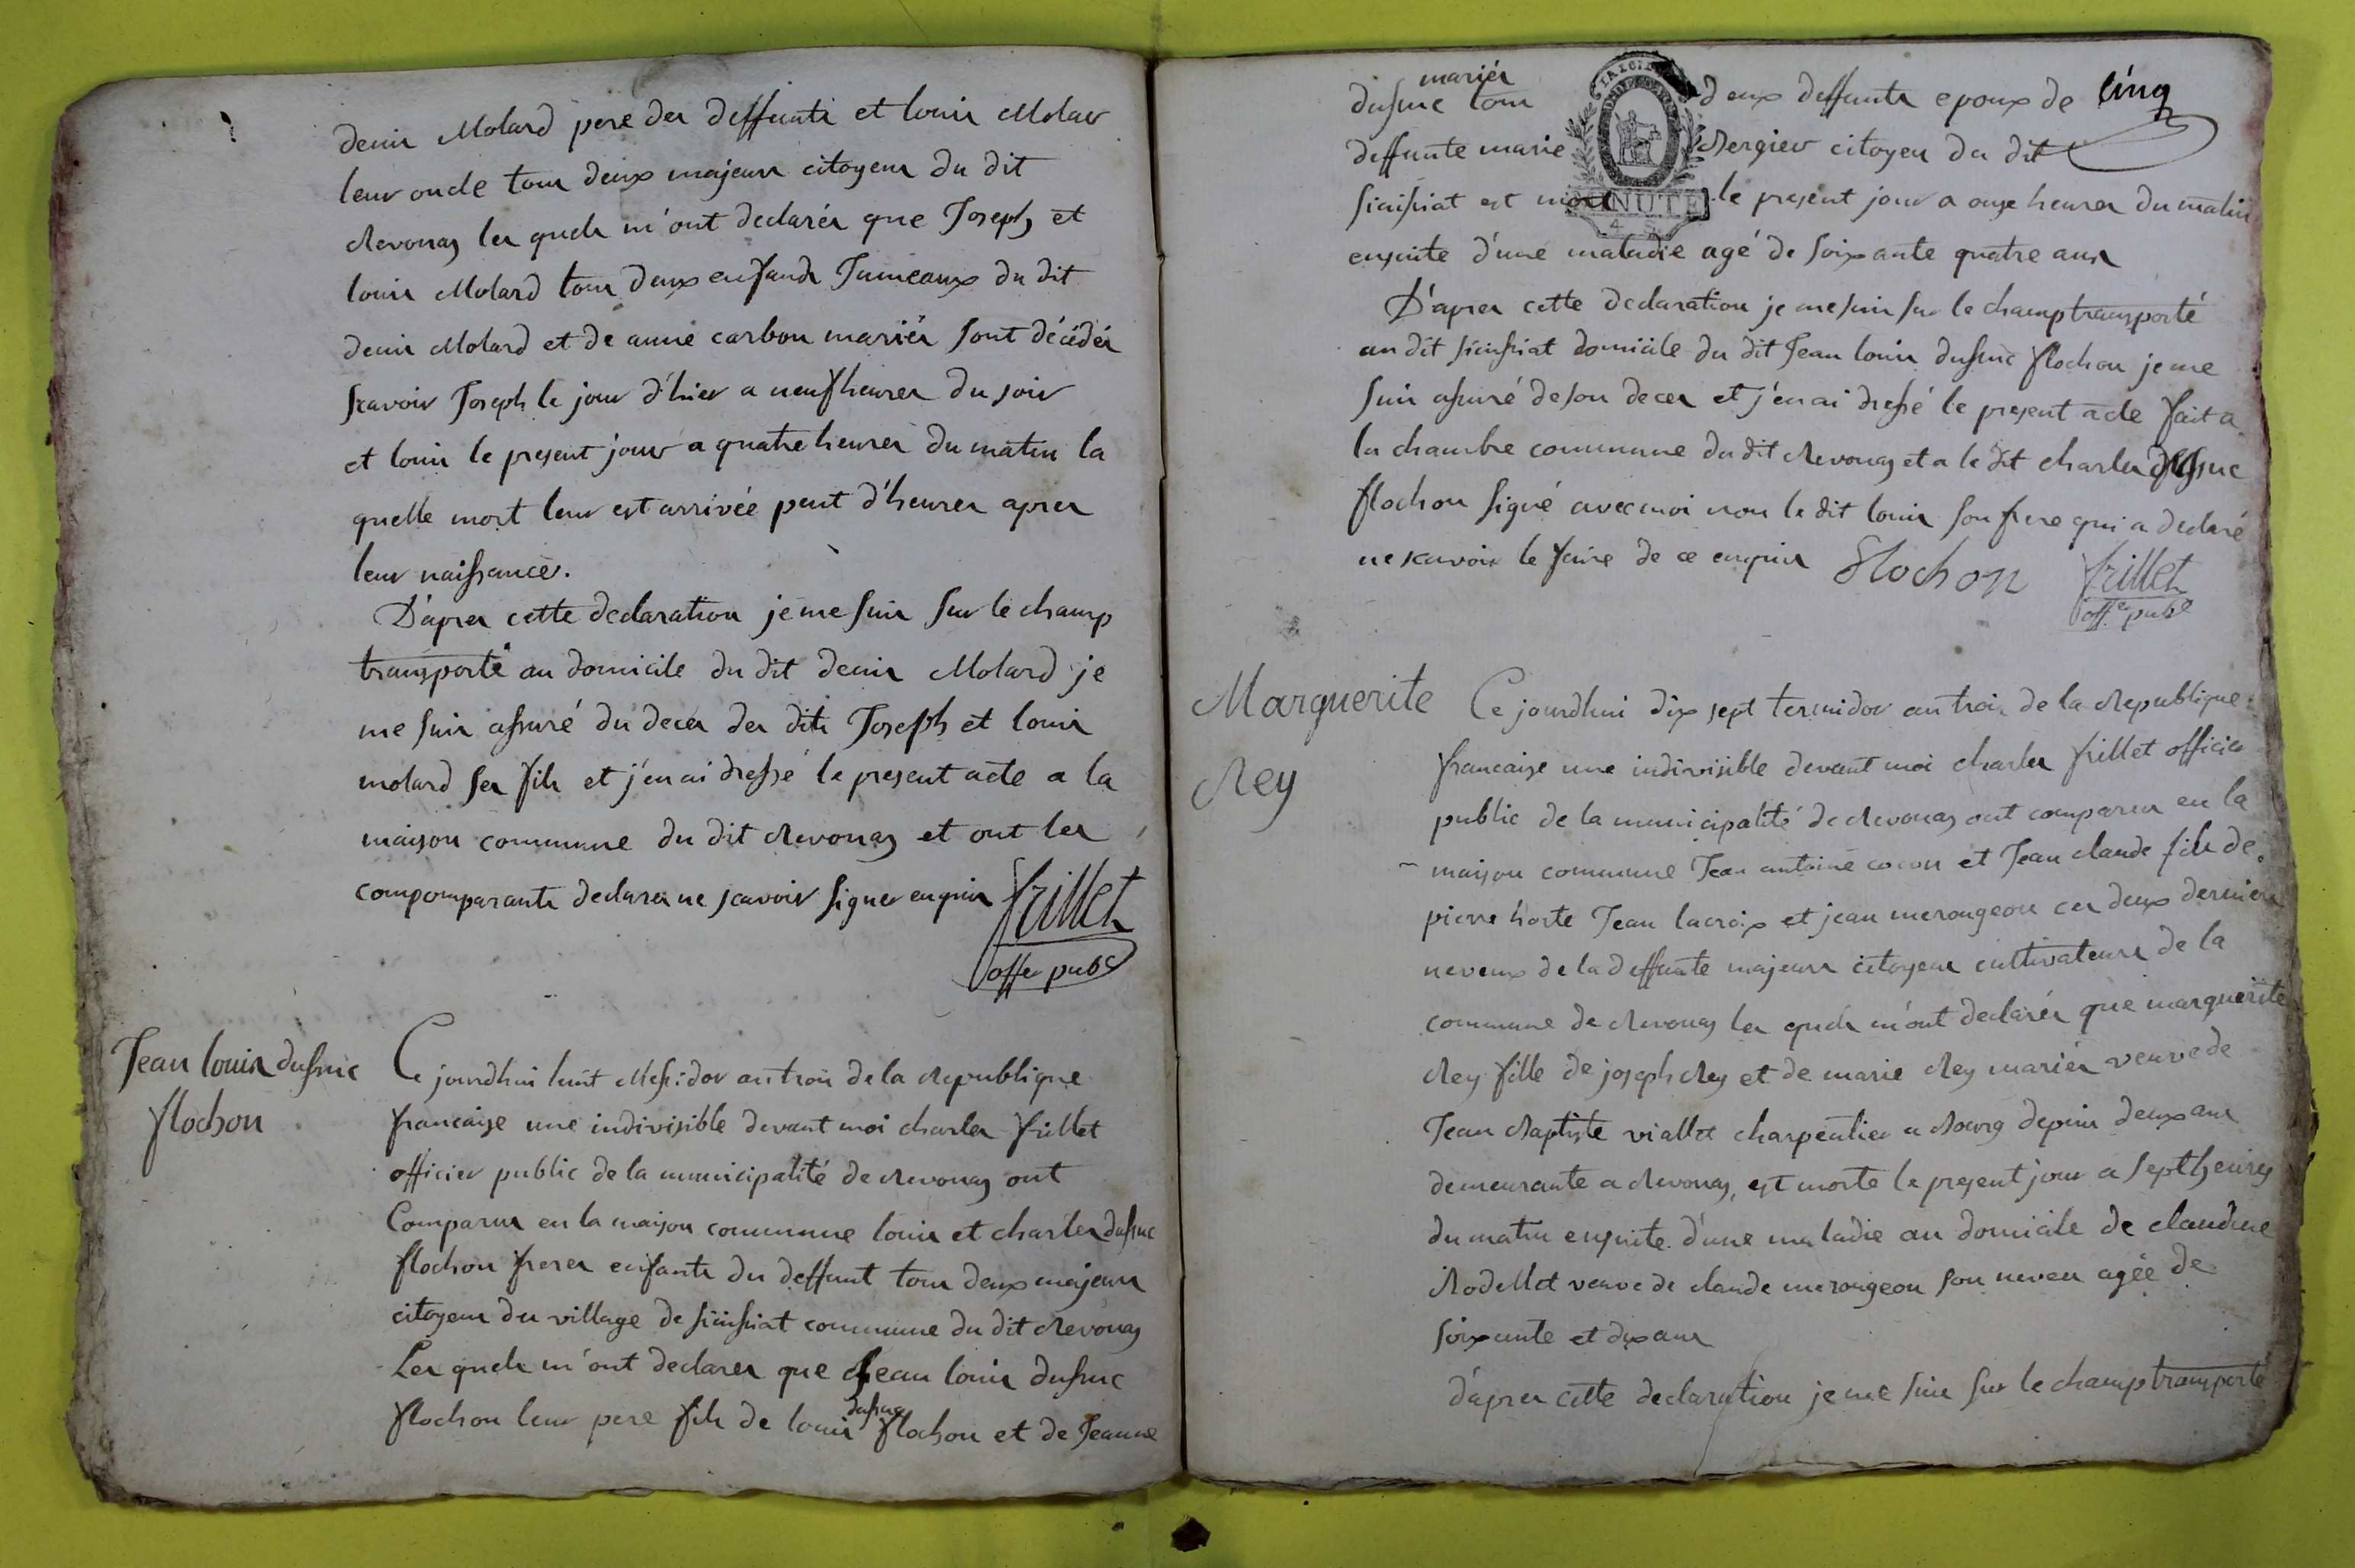 denis Molard pere des deffunts et louis Molar
leur oncle tous deux majeurs citoyens du dit
Revonas les quels m'ont declarés que Joseph et
louis Molard tous deux enfands Jumeaux du dit
denis Molard et de anne carbon mariés sont décédés
scavoir Joseph le jour d'hier a neuf heures du soir
et louis le present jour a quatre heures du matin la
quelle mort leur est arrivée peut d'heures apres
leur naissance.
D'apres cette declaration je me suis sur le champ
transporté au domicile du dit denis Molard je
me suis assuré du deces des dits Joseph et louis
molard ses fils et j'en ai dressé le present acte a la
maison commune du dit Revonas et ont les
compomparants declares ne scavoir signer enquis frillet
offer pubc
Jean louis dufsuc
flochon
Ce jourdhui huit Messidor an trois de la Republique
francaise une indivisible devant moi charles frillet
officier public de la municipalité de Revonas ont
Comparus en la maison commune louis et charles dufsuc
flochon freres enfants du deffunt tous deux majeurs
citoyens du village de sinssiat commune du dit Revonas
Les quels m'ont declares que Jean louis dufsuc
flochon leur pere fils de louis dufsuc flochon et de Jeanne
dufsuc mariés tous deux deffunts epoux de cinq
deffunte marie Bergier citoyen du dit
sinssiat est mort le present jour a onze heures du matin
MINUTE
ensuite d'une maladie agé de soixante quatre ans
D'apres cette declaration je me suis sur le champ transporté
au dit sinssiat domicile du dit Jean louis dufsuc flochon je me
suis assuré de son deces et j'en ai dressé le present acte fait a
la chambre commune du dit Revonas et a le dit charles dufsuc
flochon signé avec moi non le dit louis son frere qui a declaré
ne scavoir le faire de ce enquis flochon frillet
offer pube
Marguerite
Rey
Ce jourdhui dix sept termidor an trois de la Republique
francaise une indivisible devant moi charles frillet officier
public de la municipalité de Revonas ont comparus en la
maison commune Jean antoine cocon et Jean claude fils de
pierre horte Jean lacroix et jean merongeon ces deux derniers
neveux de la deffunte majeurs citoyens cultivateurs de la
commune de Revonas les quels m'ont declarés que marguerite
Rey fille de joseph Rey et de marie Rey mariés veuve de
Jean Baptiste viallet charpentier a Bourg depuis deux ans
demeurante a Revonas, est morte le present jour a sept heures
du matin ensuite d'une maladie au domicile de claudine
Rodellet veuve de claude merongeon son neveu agée de
soixante et dix ans
d'apres cette declaration je me suis sur le champ transporté